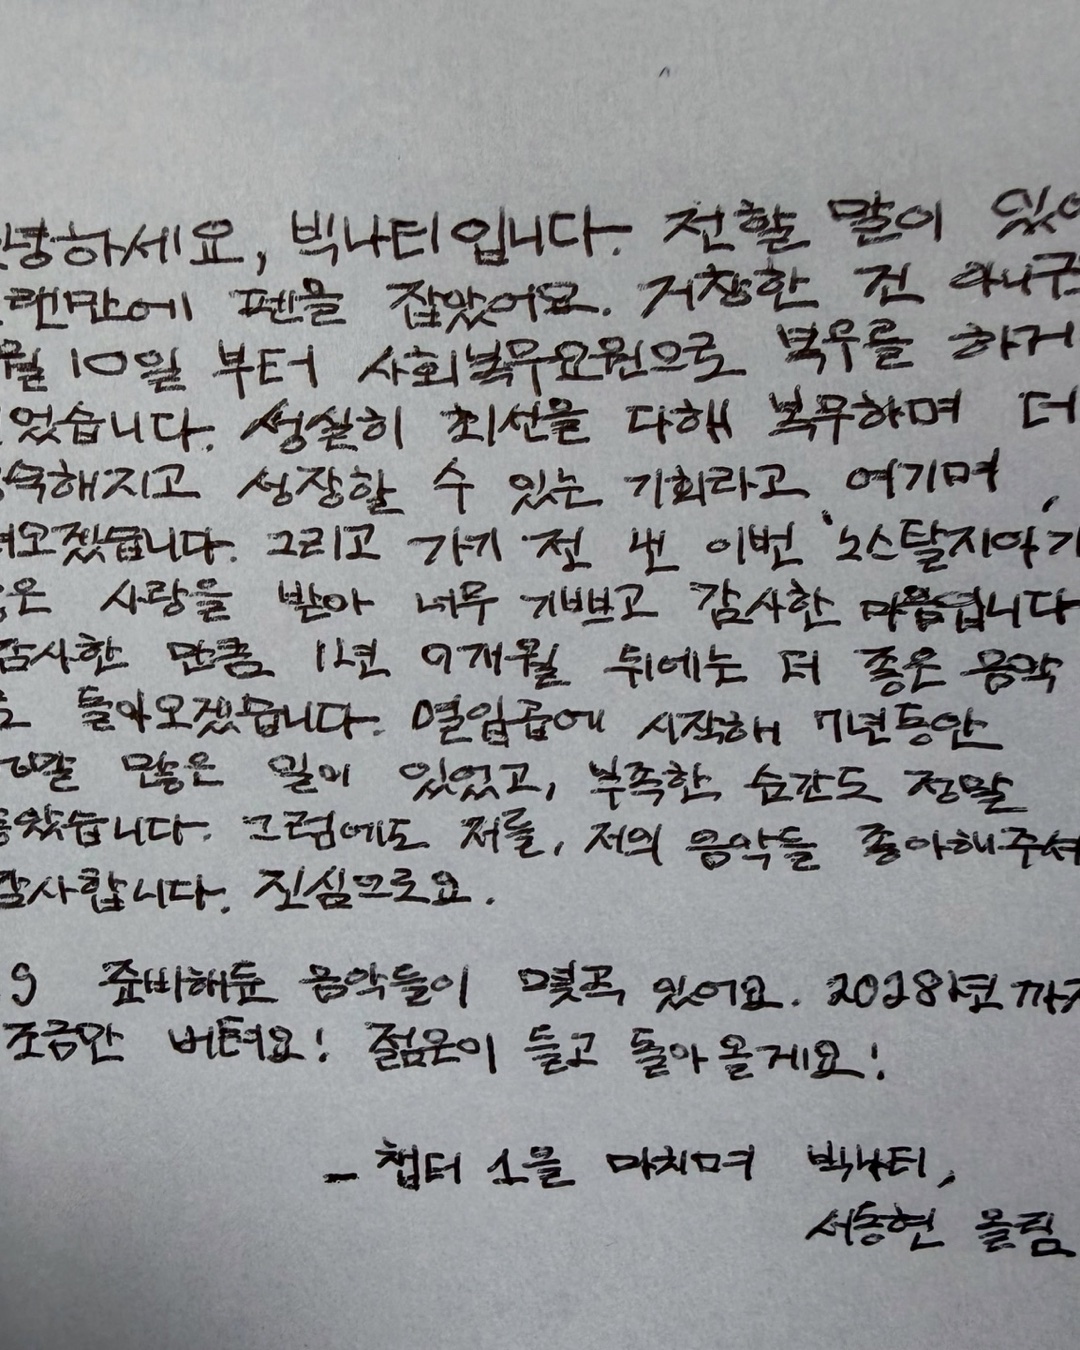 녕하세요, 빅나티입니다. 전할 말이 있어
랜만에 펜을 잡았어요. 거창한 건 아니구
월 10일 부터 사회복무요원으로 복무를 하게
었습니다. 성실히 최선을 다해 복무하며 더
숙해지고 성장할 수 있는 기회라고 여기며,
녀오겠습니다. 그리고 가기 전 낸 이번 '노스탈지아'가
은 사랑을 받아 너무 기쁘고 감사한 마음입니다
감사한 만큼 1년 9개월 뒤에는 더 좋은 음악
로 돌아오겠습니다. 열입곱에 시작해 7년동안
정말 많은 일이 있었고, 부족한 순간도 정말
많았습니다. 그럼에도 저를, 저의 음악들 좋아해주셔
감사합니다. 진심으로요.
준비해둔 음악들이 몇곡 있어요. 2028년까지
조금만 버텨요! 젊은이 들고 돌아올게요!
- 챕터 1을 마치며 빅나티,
서동현 올림